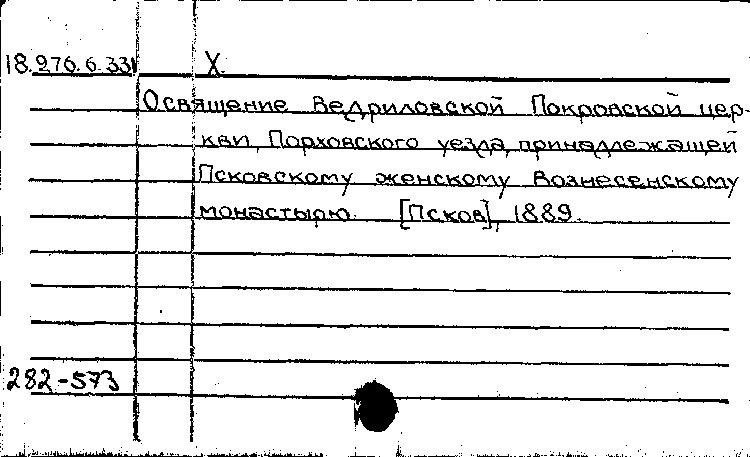 18.276.6.331 X.
Освящение Ведриловской Покровской цер-
кви, Порховского уезда, принадлежащей
Псковскому женскому Вознесенскому
монастырю. [Псков], 1889.
282-573